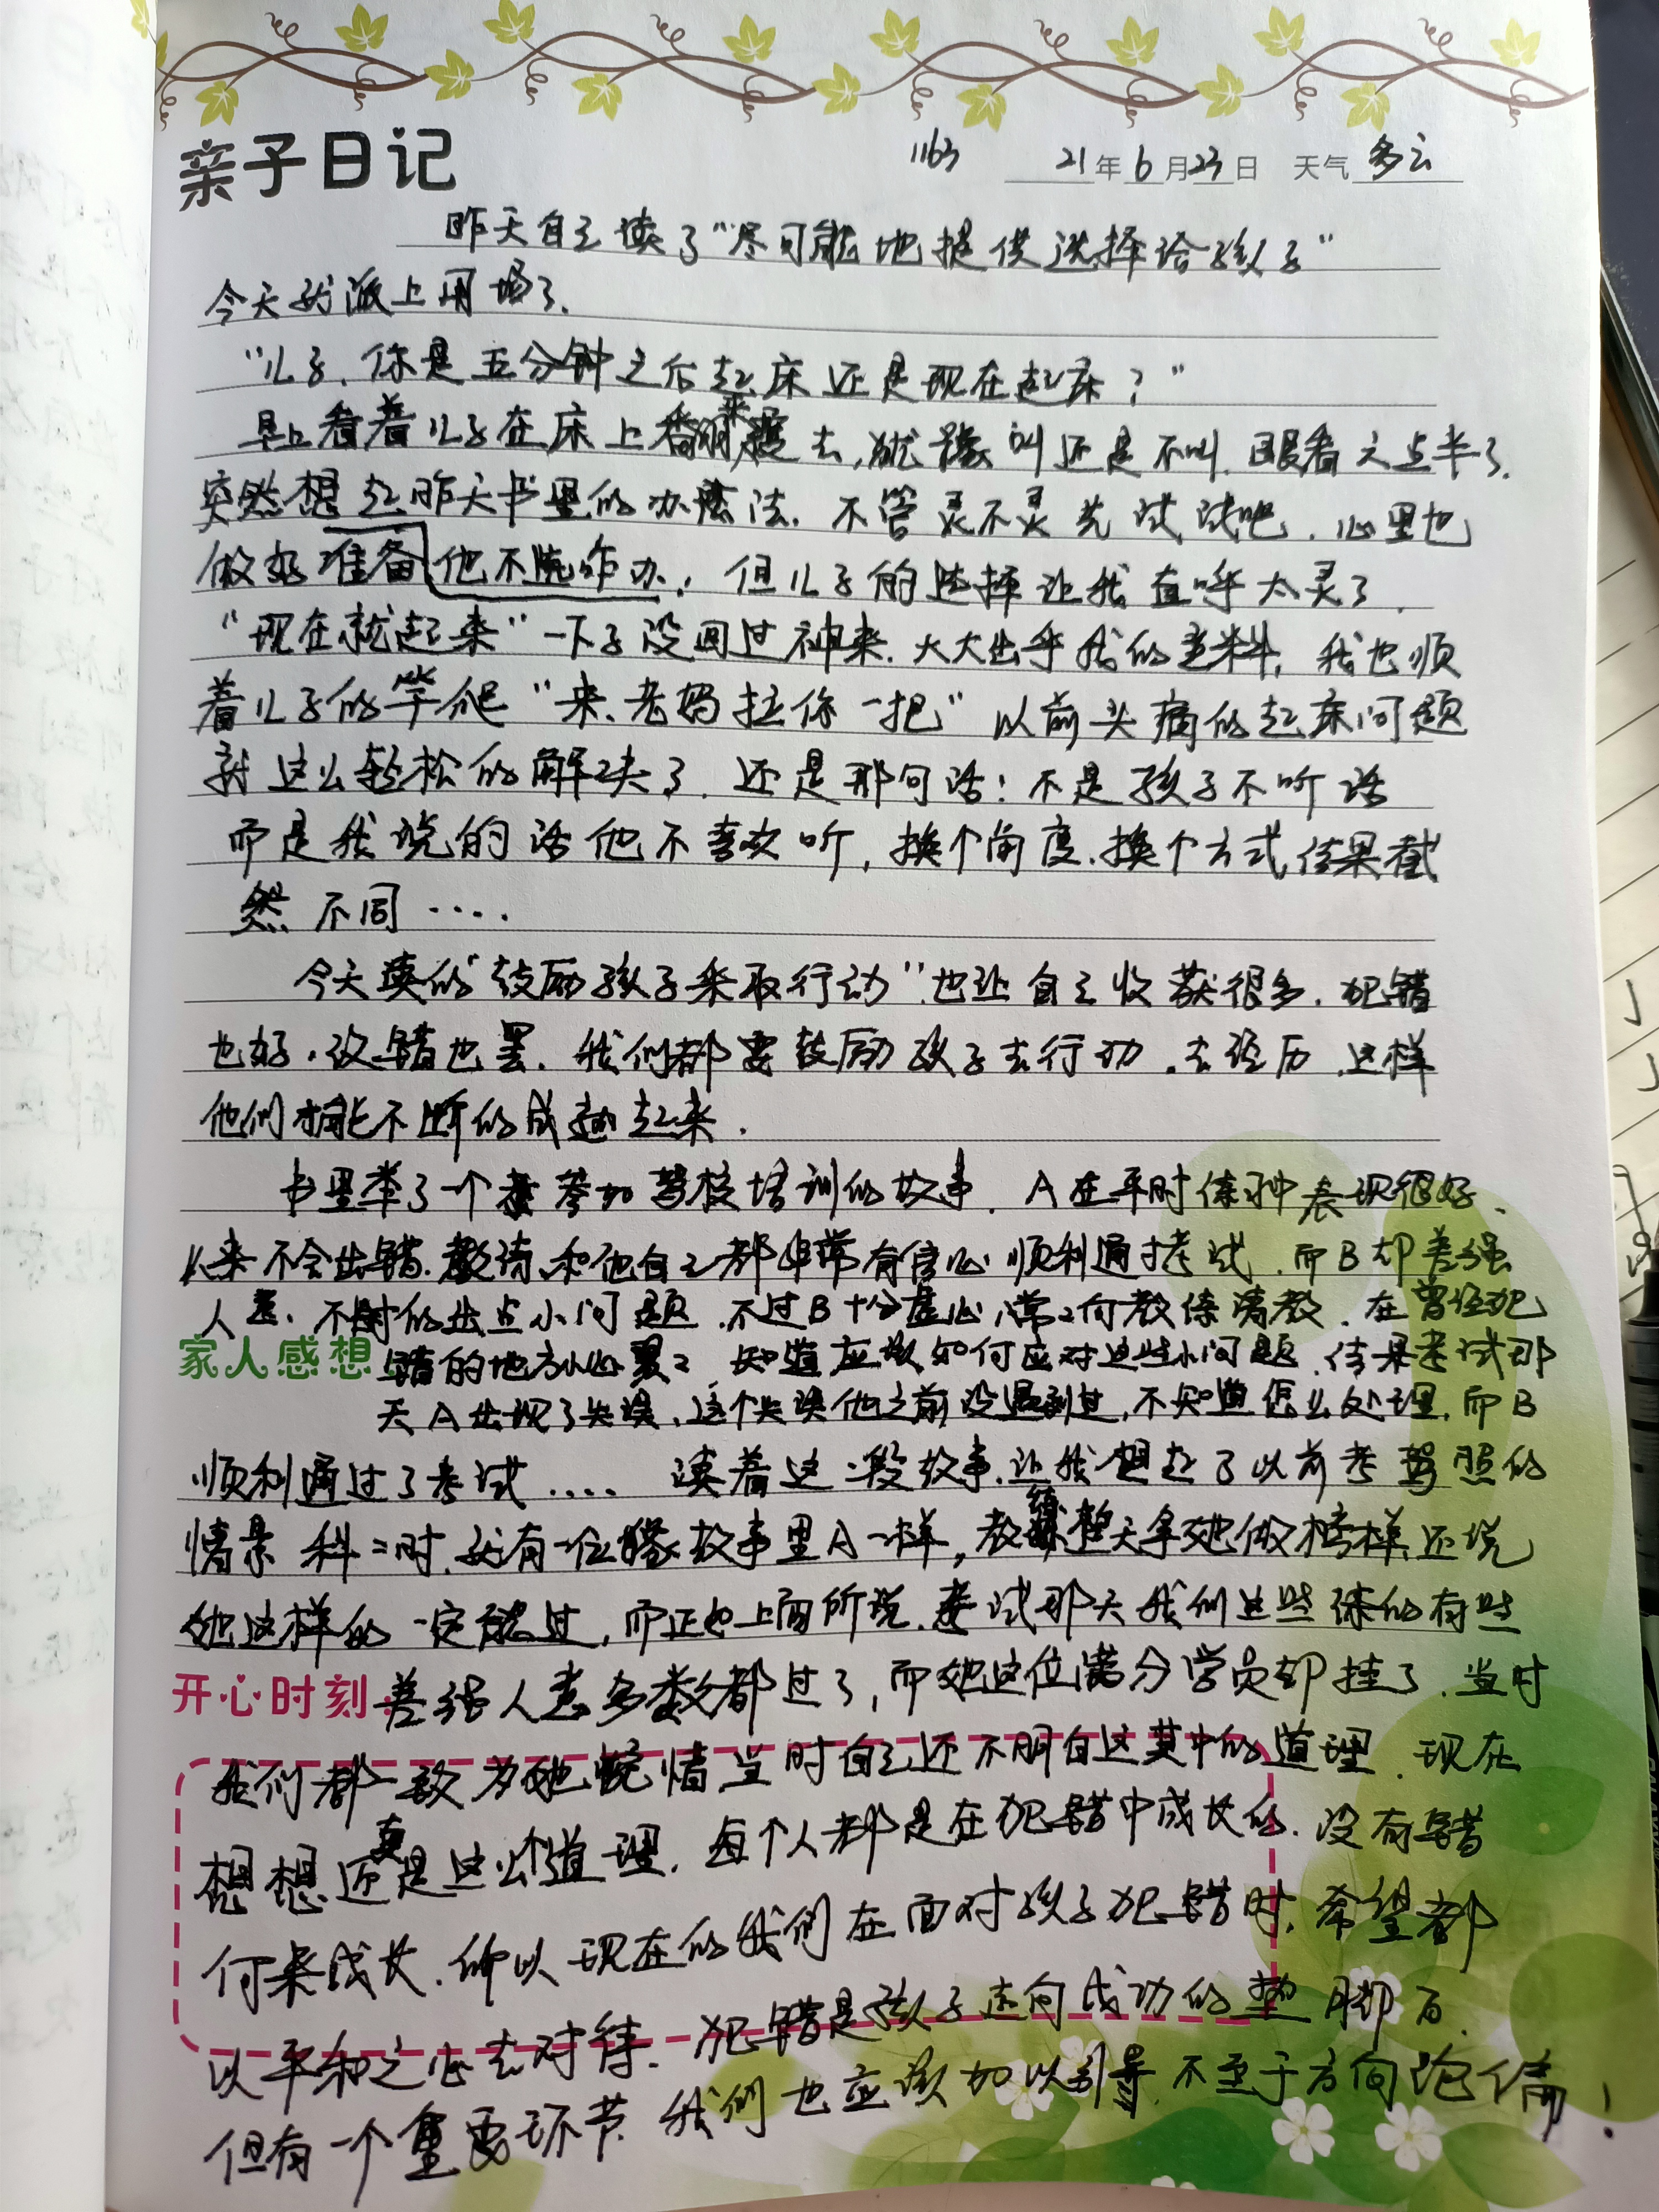 亲子日记 1163 21年6月23日 天气多云
昨天自己读了“尽可能地提供选择给孩子”
今天就派上用场了.
“儿子,你是五分钟之后起床还是现在起床?”
早上看着儿子在床上翻来覆去,犹豫叫还是不叫.眼看六点半了.
突然想起昨天书里的办法.不管灵不灵先试试吧.心里也
做好准备他不起咋办.但儿子的选择让我直呼太灵了.
“现在就起来”一下子没回过神来.大大出乎我的意料,我也顺
着儿子的竿爬“来、老妈拉你一把”以前头痛的起床问题
就这么轻松的解决了.还是那句话:不是孩子不听话
而是我说的话他不喜欢听,换个角度.换个方式,结果截
然不同....
今天读的“鼓励孩子采取行动”也让自己收获很多.犯错
也好.没错也罢.我们都要鼓励孩子去行动.去经历.这样
他们才能不断的成 起来.
书里举了一个 参加驾校培训的故事.A在平时练习中表现很好.
从来不会出错.教练和他自己都非常有信心顺利通过考试.而B却差强
人意.不时的出点小问题.不过B十分虚心,常常向教练请教.在曾经犯
家人感想 错的地方 知道应该如何应对这些小问题.结果考试那
天A出现了失误.这个失误他之前没遇到过,不知道怎么处理.而B
顺利通过了考试.... 读着这一段故事.让我想起了以前考驾照的
情景 科二时.就有一位像故事里A一样,教练整天拿她做榜样.还说
她这样的一定能过,而正如上面所说.考试那天我们这些练的有些
开心时刻 差强人意多数都过了,而她这位满分学员却挂了.当时
我们都一致为她惋惜.当时自己还不明白这其中的道理.现在
想想.还真是这么个道理.每个人都是在犯错中成长的.没有错
何来成长.所以现在的我们在面对孩子犯错时.希望都
以平和之心去对待.犯错是孩子走向成功的垫脚石.
但有一个重要环节.我们也应该加以引导.不至于方向跑偏!